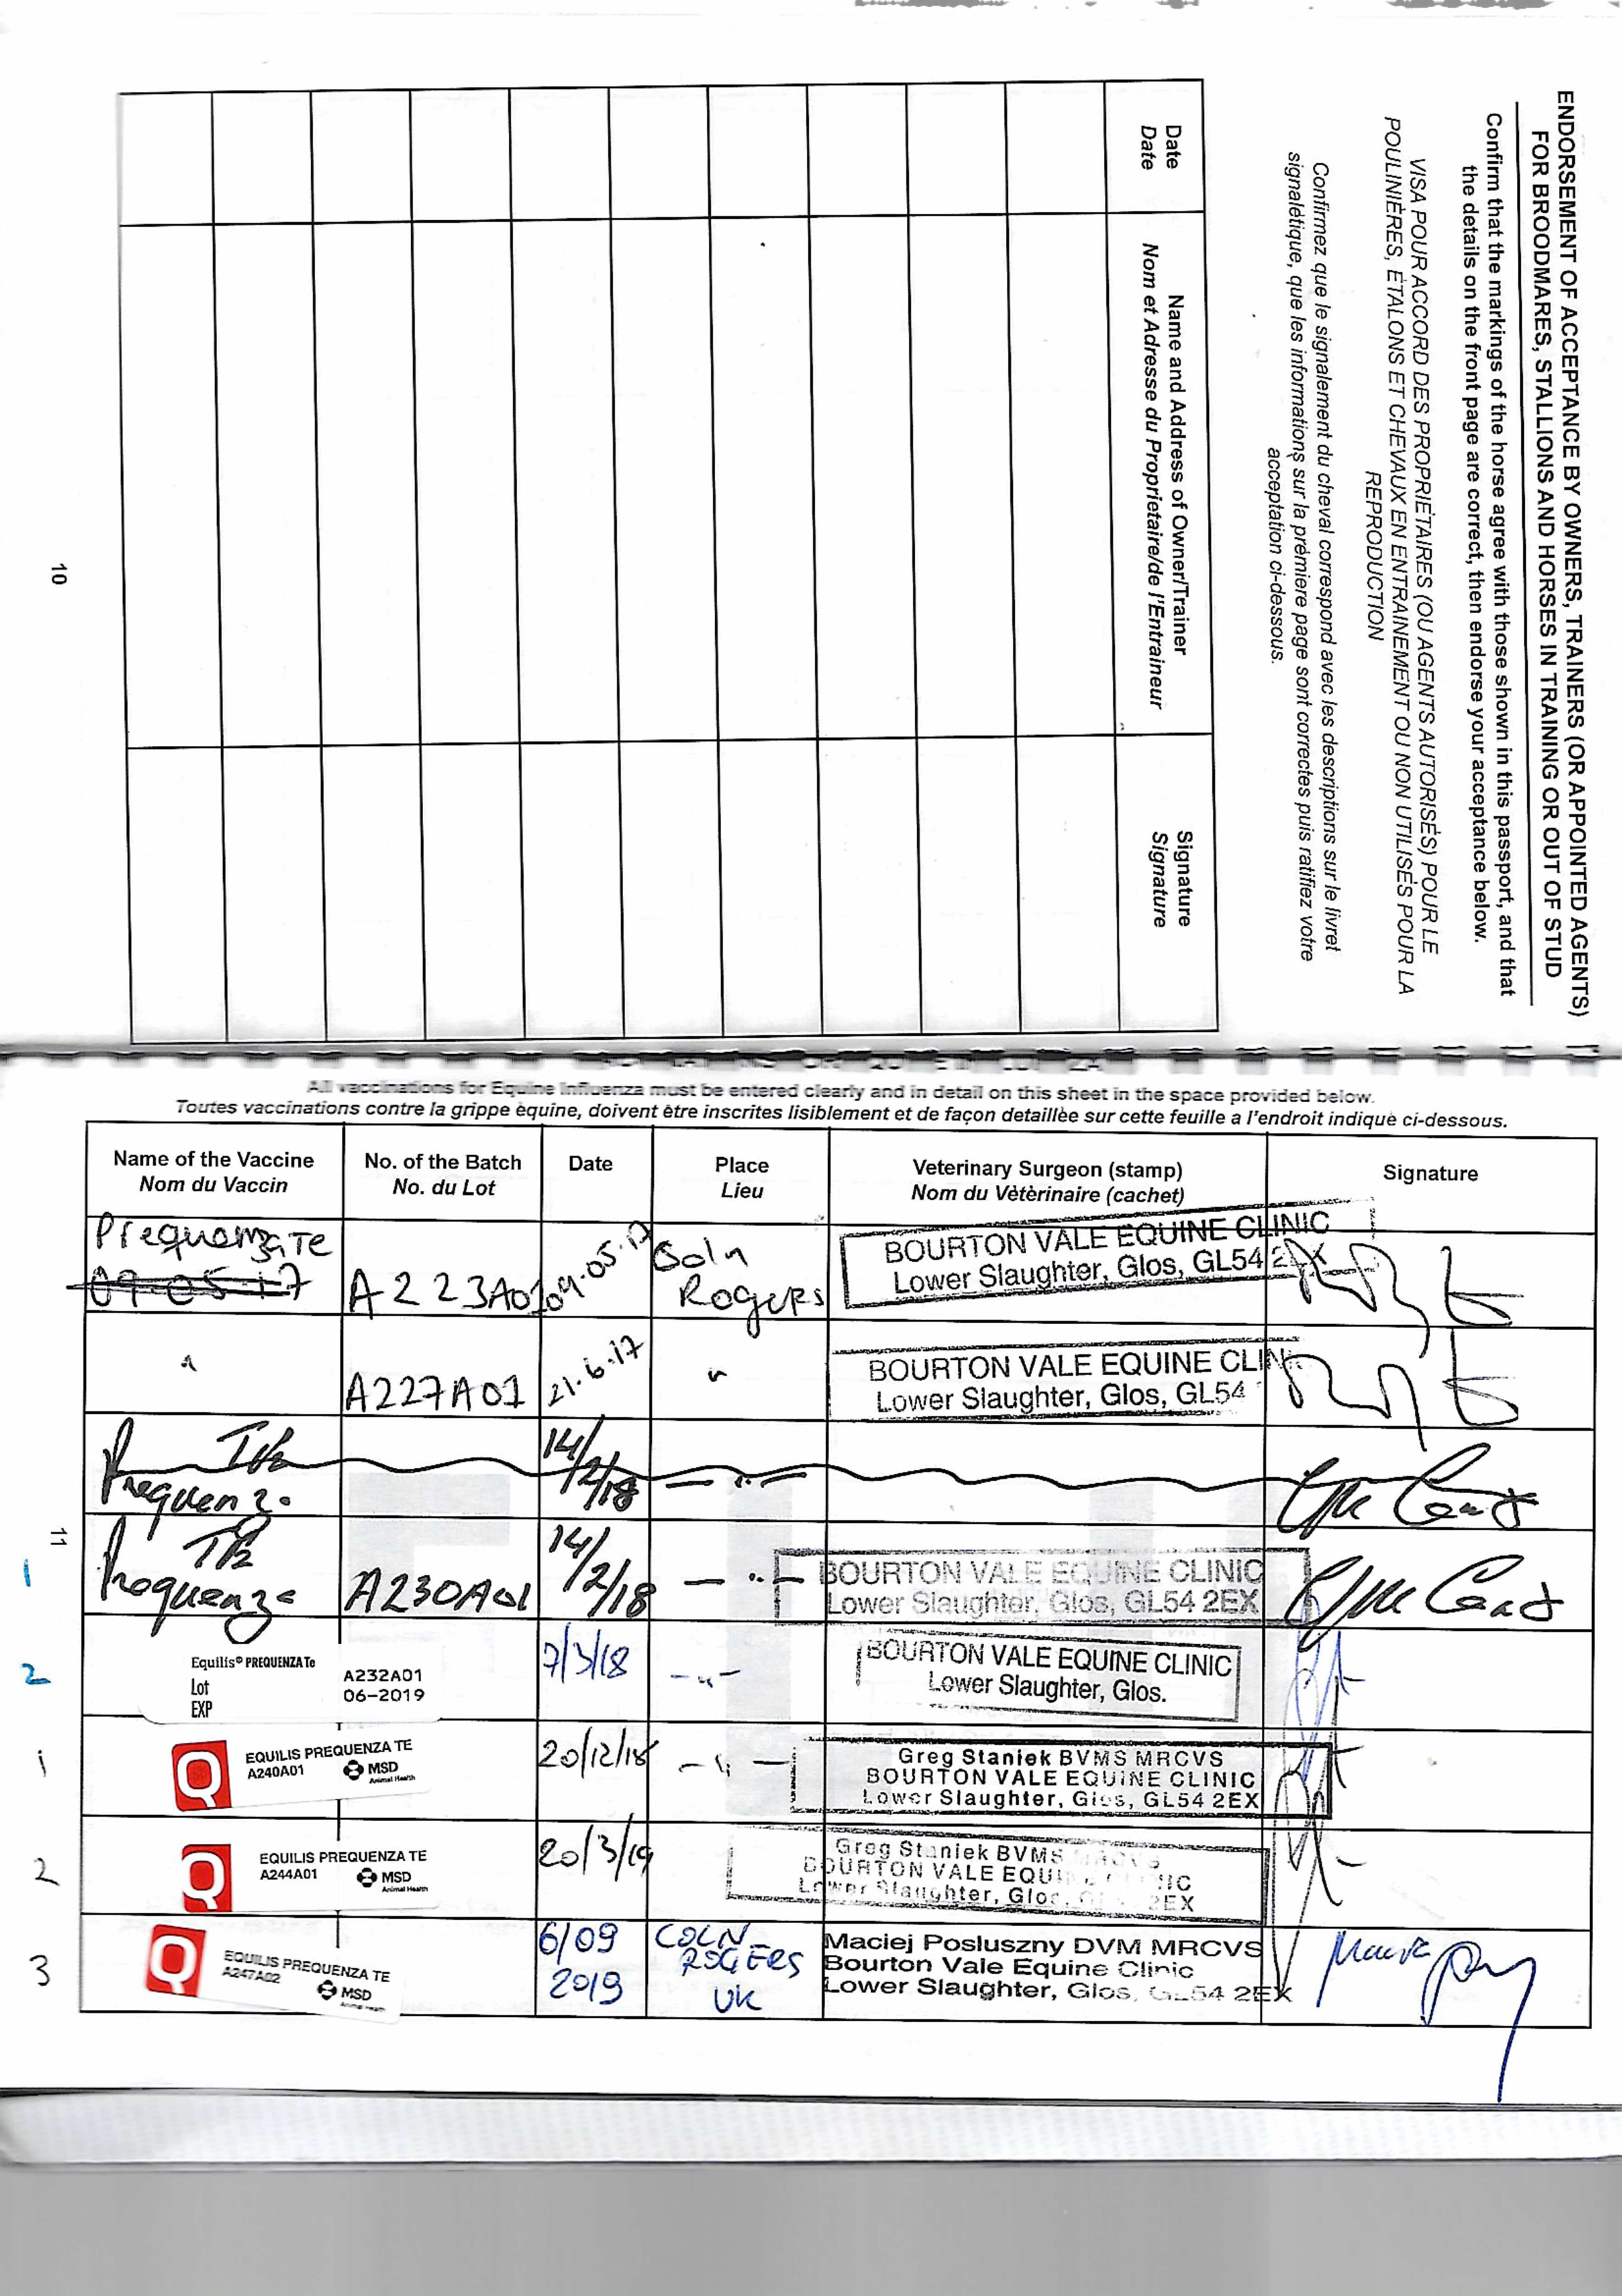 ENDORSEMENT OF ACCEPTANCE BY OWNERS, TRAINERS (OR APPOINTED AGENTS)
FOR BROODMARES, STALLIONS AND HORSES IN TRAINING OR OUT OF STUD
Confirm that the markings of the horse agree with those shown in this passport, and that
the details on the front page are correct, then endorse your acceptance below.
VISA POUR ACCORD DES PROPRIÉTAIRES (OU AGENTS AUTORISÉS) POUR LE
POULINIÈRES, ÉTALONS ET CHEVAUX EN ENTRAINEMENT OU NON UTILISÉS POUR LA
REPRODUCTION
Confirmez que le signalement du cheval correspond avec les descriptions sur le livret
signalétique, que les informations sur la prèmiere page sont correctes puis ratifiez votre
acceptation ci-dessous.
Date
Date
Name and Address of Owner/Trainer
Nom et Adresse du Proprietaire/de l'Entraineur
Signature
Signature
10
All vaccinations for Equine Influenza must be entered clearly and in detail on this sheet in the space provided below.
Toutes vaccinations contre la grippe èquine, doivent être inscrites lisiblement et de façon detaillèe sur cette feuille a l'endroit indiquè ci-dessous.
Name of the Vaccine No. of the Batch Date Place Veterinary Surgeon (stamp) Signature
Nom du Vaccin No. du Lot Lieu Nom du Vètèrinaire (cachet)
Prequenza Te
09.05.17 A223A01 09.05.17 Coln Rogers
BOURTON VALE EQUINE CLINIC
Lower Slaughter, Glos, GL54 2EX
" A227A01 21.6.17 "
BOURTON VALE EQUINE CLINIC
Lower Slaughter, Glos, GL54
Prequenza 14/2/18 — " —
11
1 Prequenza A230A01 14/2/18 — " —
BOURTON VALE EQUINE CLINIC
Lower Slaughter, Glos, GL54 2EX
2 Equilis® PREQUENZA Te
Lot A232A01
EXP 06-2019
7/3/18 — " —
BOURTON VALE EQUINE CLINIC
Lower Slaughter, Glos.
1 EQUILIS PREQUENZA TE
A240A01 MSD
Animal Health
20/12/18 — " —
Greg Staniek BVMS MRCVS
BOURTON VALE EQUINE CLINIC
Lower Slaughter, Glos, GL54 2EX
2 EQUILIS PREQUENZA TE
A244A01 MSD
Animal Health
20/3/19
Greg Staniek BVMS MRCVS
BOURTON VALE EQUINE CLINIC
Lower Slaughter, Glos, GL54 2EX
3 EQUILIS PREQUENZA TE
A247A02 MSD
Animal Health
6/09
2019
COLN
ROGERS
UK
Maciej Posluszny DVM MRCVS
Bourton Vale Equine Clinic
Lower Slaughter, Glos, GL54 2EX